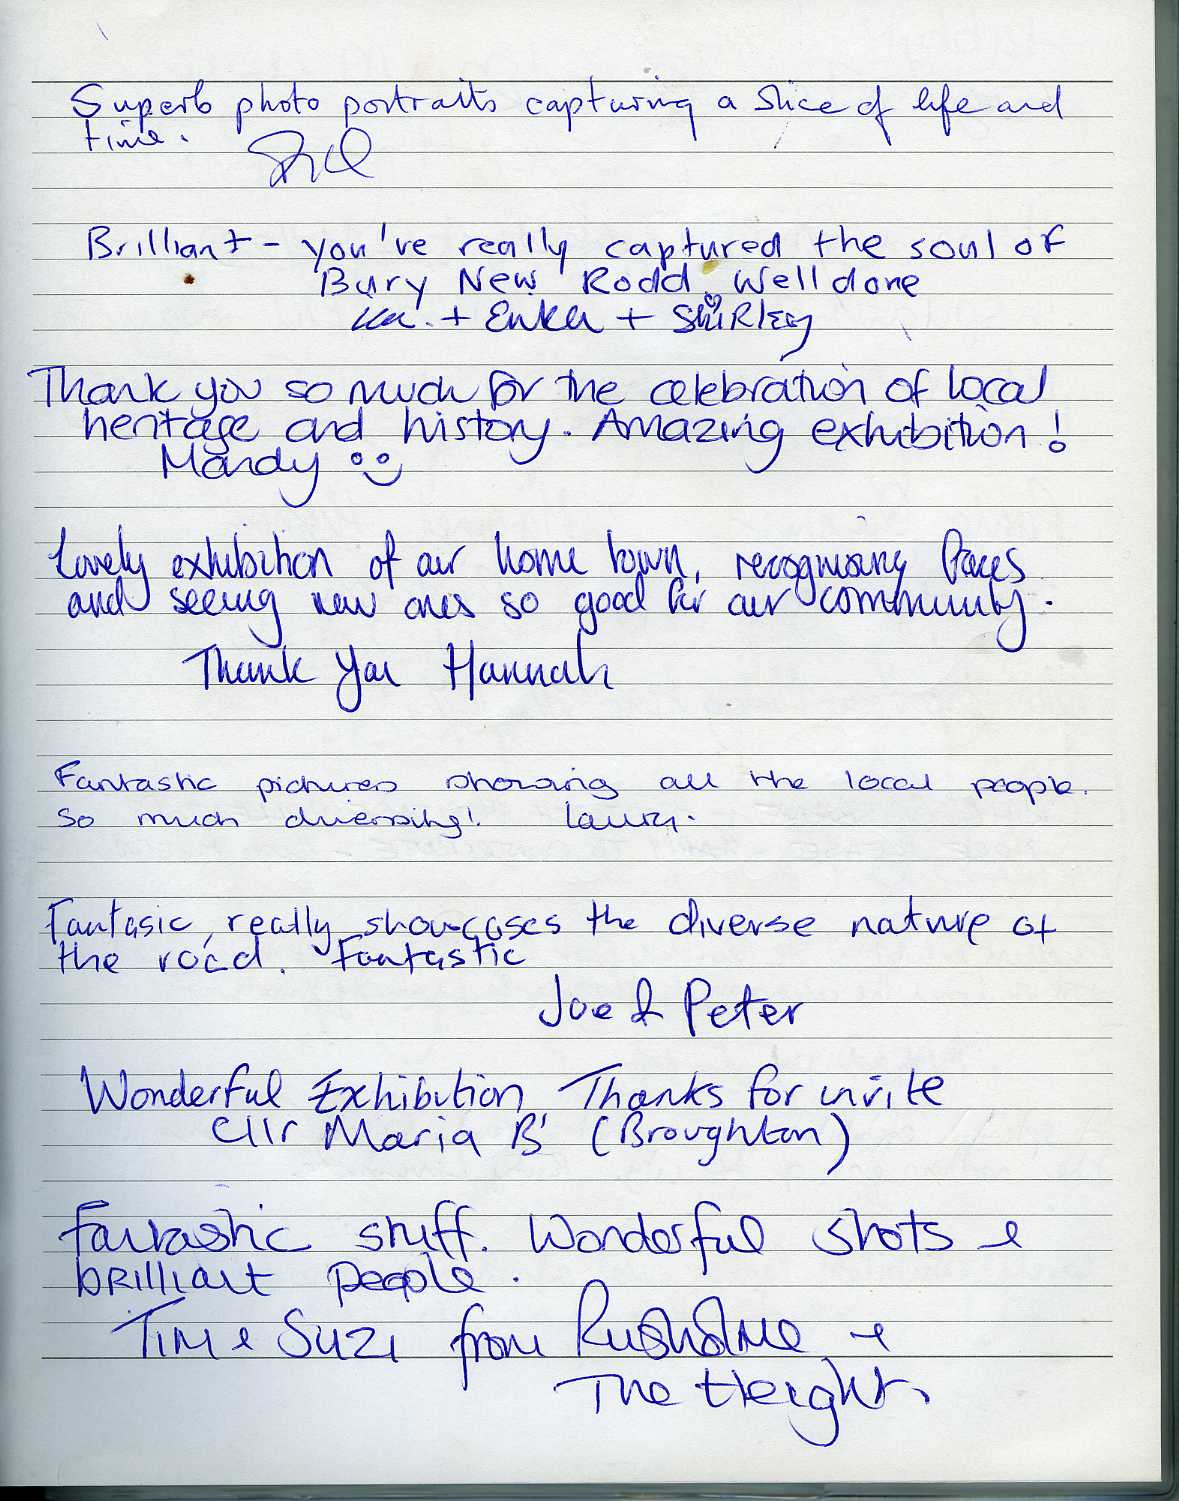 Superb photo portraits capturing a slice of life and
time.
Brilliant - you've really captured the soul of
Bury New Rodd. Well done
+ + Shirley
Thank you so much for the celebration of local
heritage and history. Amazing exhibition!
Mandy
Lovely exhibition of our home town, recognising faces
and seeing new ones so good for our community.
Thank you Hannah
Fantastic pictures showing all the local people.
So much diversity!
Fantasic, really showcases the diverse nature of
the road. Fantastic
Joe & Peter
Wonderful Exhibition Thanks for invite
Cllr Maria B' (Broughton)
Fantastic stuff. Wonderful shots &
brilliant people.
Tim & Suzi from Rusholme &
The Height.